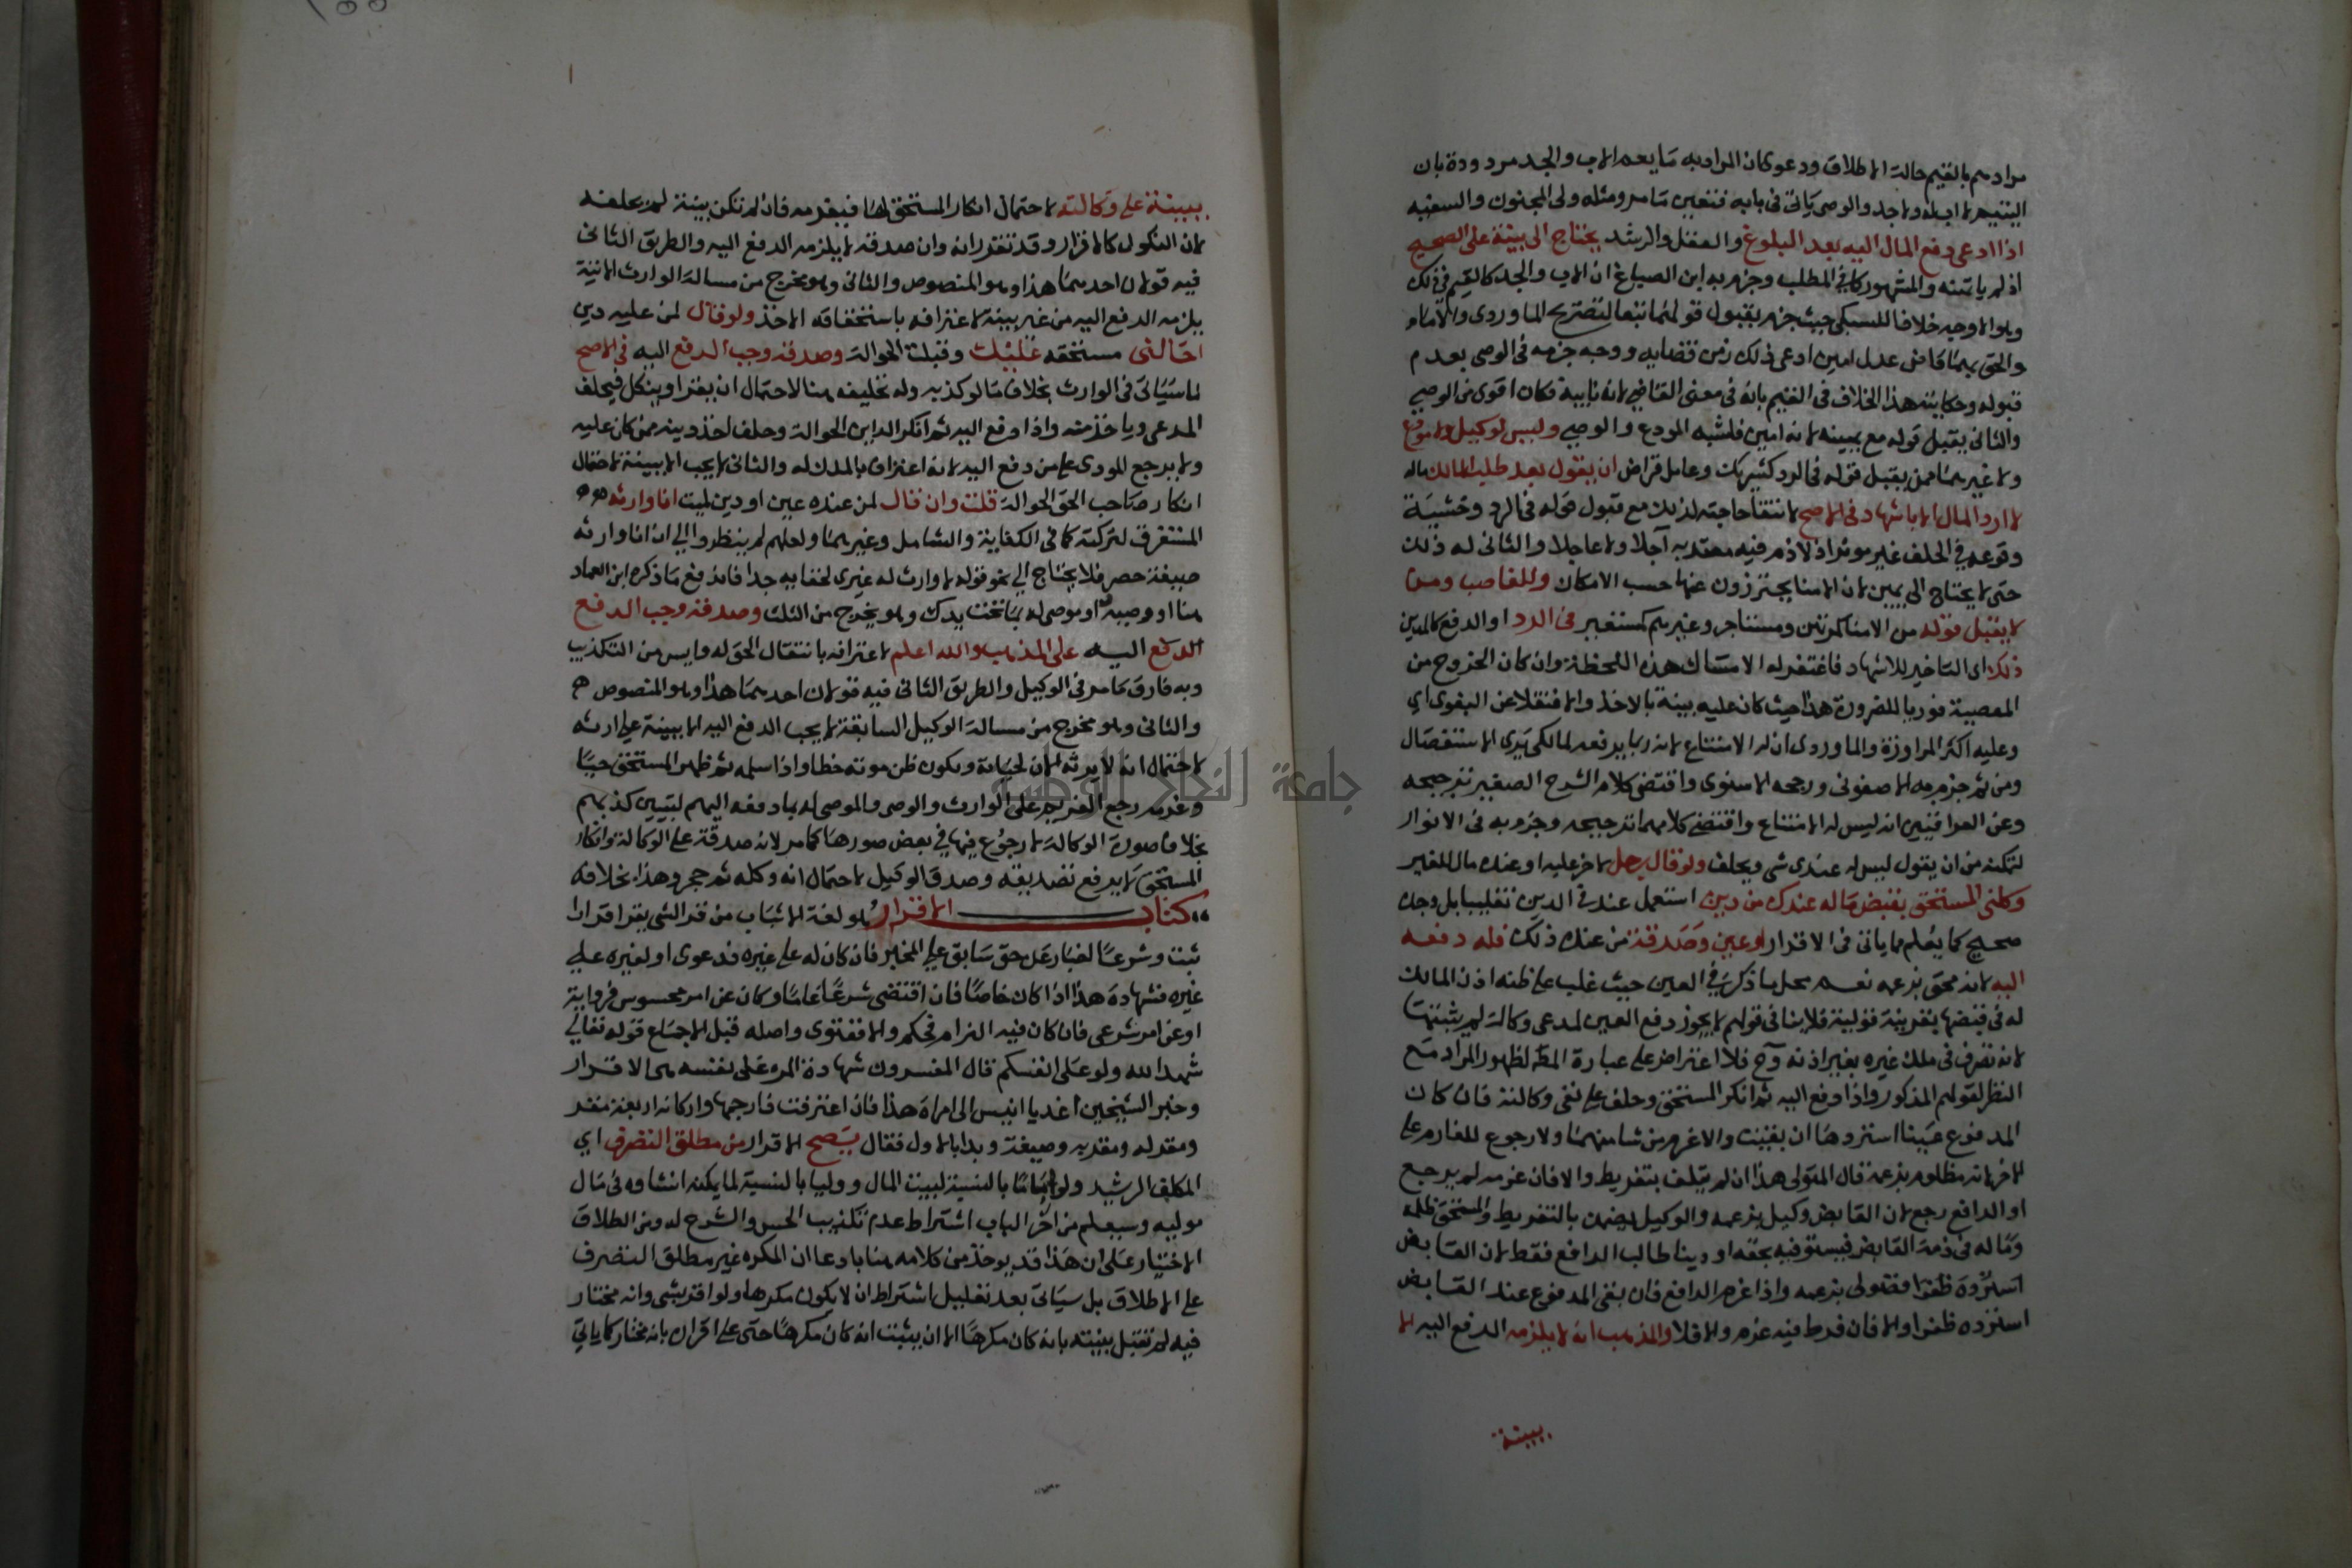 مرادهم بالقيم حالة الاطلاق ودعوى ان المراد به مَا يعم الاب والجد مردودة بان
اليتيم لا اب له ولا جد والوصي يَاتي في بابه فتعين مَا مر ومثله ولي المجنون والسفيه
اذا ادعى دفع المال اليه بعد البلوغ والعقل والرشد يحتاج الى بينة على الصحيح
اذ لم ياتمنه والمشهور كما في المطلب وجزم به ابن الصباغ ان الاب والجد كالقيم في ذلك
وهو الاوجه خلافا للسبكي حيث جزم بقبول قولهما تبعا لتصريح الماوردي والامام
والحق بهما قاض عدل امين ادعى ذلك زمن قضايه ووجه جزمه في الوصي بعدم
قبوله وحكايته هذا الخلاف في القيم بانه في معنى القاضي لانه نايبه فكان اقوى من الوصي
والثاني يقبل قوله مع يمينه لانه امين فاشبه المودع والوصي وليس لوكيل ولا مودع
ولا غيرهما ممن يقبل قوله في الرد كشريك وعامل قراض ان يقول بعد طلب المالك ماله
لا ارد المال الا باشهاد في الاصح لانتفا حاجته لذلك مع قبول قوله في الرد وخشيَة
وقوعه في الحلف غير موثر اذ لا ذم فيه معتد به آجلا ولا عاجلا والثاني له ذلك
حتى لا يحتاج الى يمين لان الامنا يحترزون عنها حسب الامكان وللغاصب ومن
لا يقبل قوله من الامنا كمرتهن ومستاجر وغيرهم كمستعير في الرد او الدفع كالمدين
ذلك اي التاخير للاشهاد فاغتفر له الامسَاك هذه اللحظة وان كان الخروج من
المعصية فوريا للضرورة هذا حيث كان عليه بينة بالاخذ والا فنقلا عن البغوي اي
وعليه اكثر المراوزة والماوردي ان له الامتناع لانه ربما يرفعه لمالكي يَرى الاستفصَال
ومن ثم جزم به الاصفوني ورجحه الاسنوي واقتضى كلام الشرح الصغير ترجيحه
وعن العراقيين انه ليس له الامتناع واقتضى كلامهما ترجيحه وجزم به في الانوار
لتمكنه من ان يقول ليس له عندي شي ويحلف ولو قال رجل لاخر عليه او عنده مال للغير
وكلني المستحق بقبض مَا له عندك من دين استعمل عند في الدين تغليبا بل وحده
صحيح كما يعُلم مما ياتي في الاقرار او عين وصَدقه من عنده ذلك فله دفعه
اليه لانه محق بزعمه نعم محل ما ذكر في العين حيث غلب على ظنه اذن المالك
له في قبضها بقرينة قوية فلا ينافي قولهم لا يجوز دفع العين لمدعي وكالة لم يثبتها
لانه تصرف في ملك غيره بغير اذنه وح فلا اعتراض على عبارة المص لظهور المراد مَع
النظر لقولهم المذكور واذا دفع اليه ثم انكر المستحق وحلف على نفي وكالته فان كان
المدفوع عيَنا استردهَا ان بقيت والا غرم من شا منهمَا ولا رجوع للغارم على
الاخر لانه مظلوم بزعمه قال المتولي هذا ان لم يتلف بتفريط والا فان غرمه لم يرجع
او الدافع رجع لان القابض وكيل بزعمه والوكيل يضمن بالتفريط والمستحق ظلمه
ومَاله في ذمة القابض فيستوفيه بحقه او دينا طالب الدافع فقط لان القابض
فضولي بزعمه واذا غرم الدافع فان بقى المدفوع عند القابض
استرده ظفرا والا فان فرط فيه غرم والا فلا والمذهب انه لا يلزمه الدفع اليه الا
ببينة
ببينة على وكالته لاحتمال انكار المستحق لهَا فيغرمه فان لم تكن بينة لم يحلفه
لان النكول كالاقرار وقد تقرر انه وان صدقه لا يلزمه الدفع اليه والطريق الثاني
فيه قولان احدهمَا هذا وهو المنصوص والثاني وهو مخرج من مسالة الوارث الاتية
يلزمه الدفع اليه من غير بينة لاعترافه باستحقاقه الاخذ ولو قال لمن عليه دين
احَالني مستحقه عَليْك وقبلت الحوالة وصدقه وجب الدفع اليه في الاصح
لما سيَاتي في الوارث بخلاف مَا لو كذبه وله تحليفه هنا لاحتمال ان يقر او ينكل فيحلف
المدعي وياخذ منه واذا دفع اليه ثم انكر الداين الحوالة وحلف اخذ دينه ممن كان عليه
ولا يرجع المودي على من دفع اليه لانه اعترف بالملك له والثاني لا يجب الا ببينة لاحتمال
انكار صَاحب الحق الحوالة قلت وان قال لمن عنده عين او دين لميت انا وارثه
المستغرق لتركته كما في الكفاية والشامل وغيرهما ولعلهم لم ينظروا الى ان انا وارثه
صيغة حصر فلا يحتاج الى نحو قوله لا وارث له غيري لخفايه جدا فاندفع مَا ذكره ابن العماد
هنا او وصيه او موصى له بمَا تحت يدك وهو يخرج من الثلث وصدقه وجب الدفع
الدفع اليه على المذهب والله اعلم لاعترافه بانتقال الحق له وايس من التكذيب
وبه فارق مَا مر في الوكيل والطريق الثاني فيه قولان احدهمَا هذا وهو المنصوص
والثاني وهو مخرج من مسالة الوكيل السابقة لا يجب الدفع اليه الا ببينة على ارثه
لاحتمال انه لا يرثه الان لحيَاته ويكون ظن موته خطا واذا سلمه ثم ظهر المستحق حيًا
وغرمه رجع الغريم على الوارث والوصي والموصى له بما دفعه اليهم لتبيين كذبهم
بخلاف صورة الوكالة لا رجُوع فيها في بعض صورهَا كما مر لانه صدقه على الوكالة وانكار
المستحق لا يرفع تصديقه وصدق الوكيل لاحتمال انه وكله ثم جحد وهذا بخلافه
كتاب الاقرار هو لغة الاثبَات من قر الشي يقر اقرارا
ثبت وشرعًا اخبَار عَن حق سَابق على المخبر فان كان له على غيره فدعوى او لغيره على
غيره فشهادة هذا اذا كان خاصًا فان اقتضى شرعًا عَامًا وكان عن امر محسوس فرواية
او عن امر شرعي فان كان فيه الزام فحكم والا ففتوى واصله قبل الاجمَاع قوله تعالى
شهدا لله ولو عَلى انفسكم قال المفسرون شهادة المرء عَلى نفسه هي الاقرار
وخبر الشيخين اغد يا انيس الى امراة هذا فان اعترفت فارجمها واركانه اربعة مقر
ومقر له ومقر به وصيغة وبدا بالاول فقال يصَح الاقرار من مطلق التصرف اي
المكلف الرشيد ولو امَامًا بالنسبة لبيت المال ووليا بالنسبة لما يمكنه انشاوه في مَال
موليه وسيعلم من اخر الباب اشتراط عدم تكذيب الحس والشرع له ومن الطلاق
الاختيَار عَلى ان هَذا قد يوخذ من كلامه هنا بادعا ان المكره غير مطلق التصرف
على الاطلاق بل سيَاتي بعد تعليل اشتراط ان لا يكون مكرها ولو اقر بشي وانه مختار
فيه لم تقبل بينته بانه كان مكرهًا الا ان يثبت انه كان مكرهًا حتى على اقراره بانه مختار كما ياتي
جامعة النجاح الوطنية